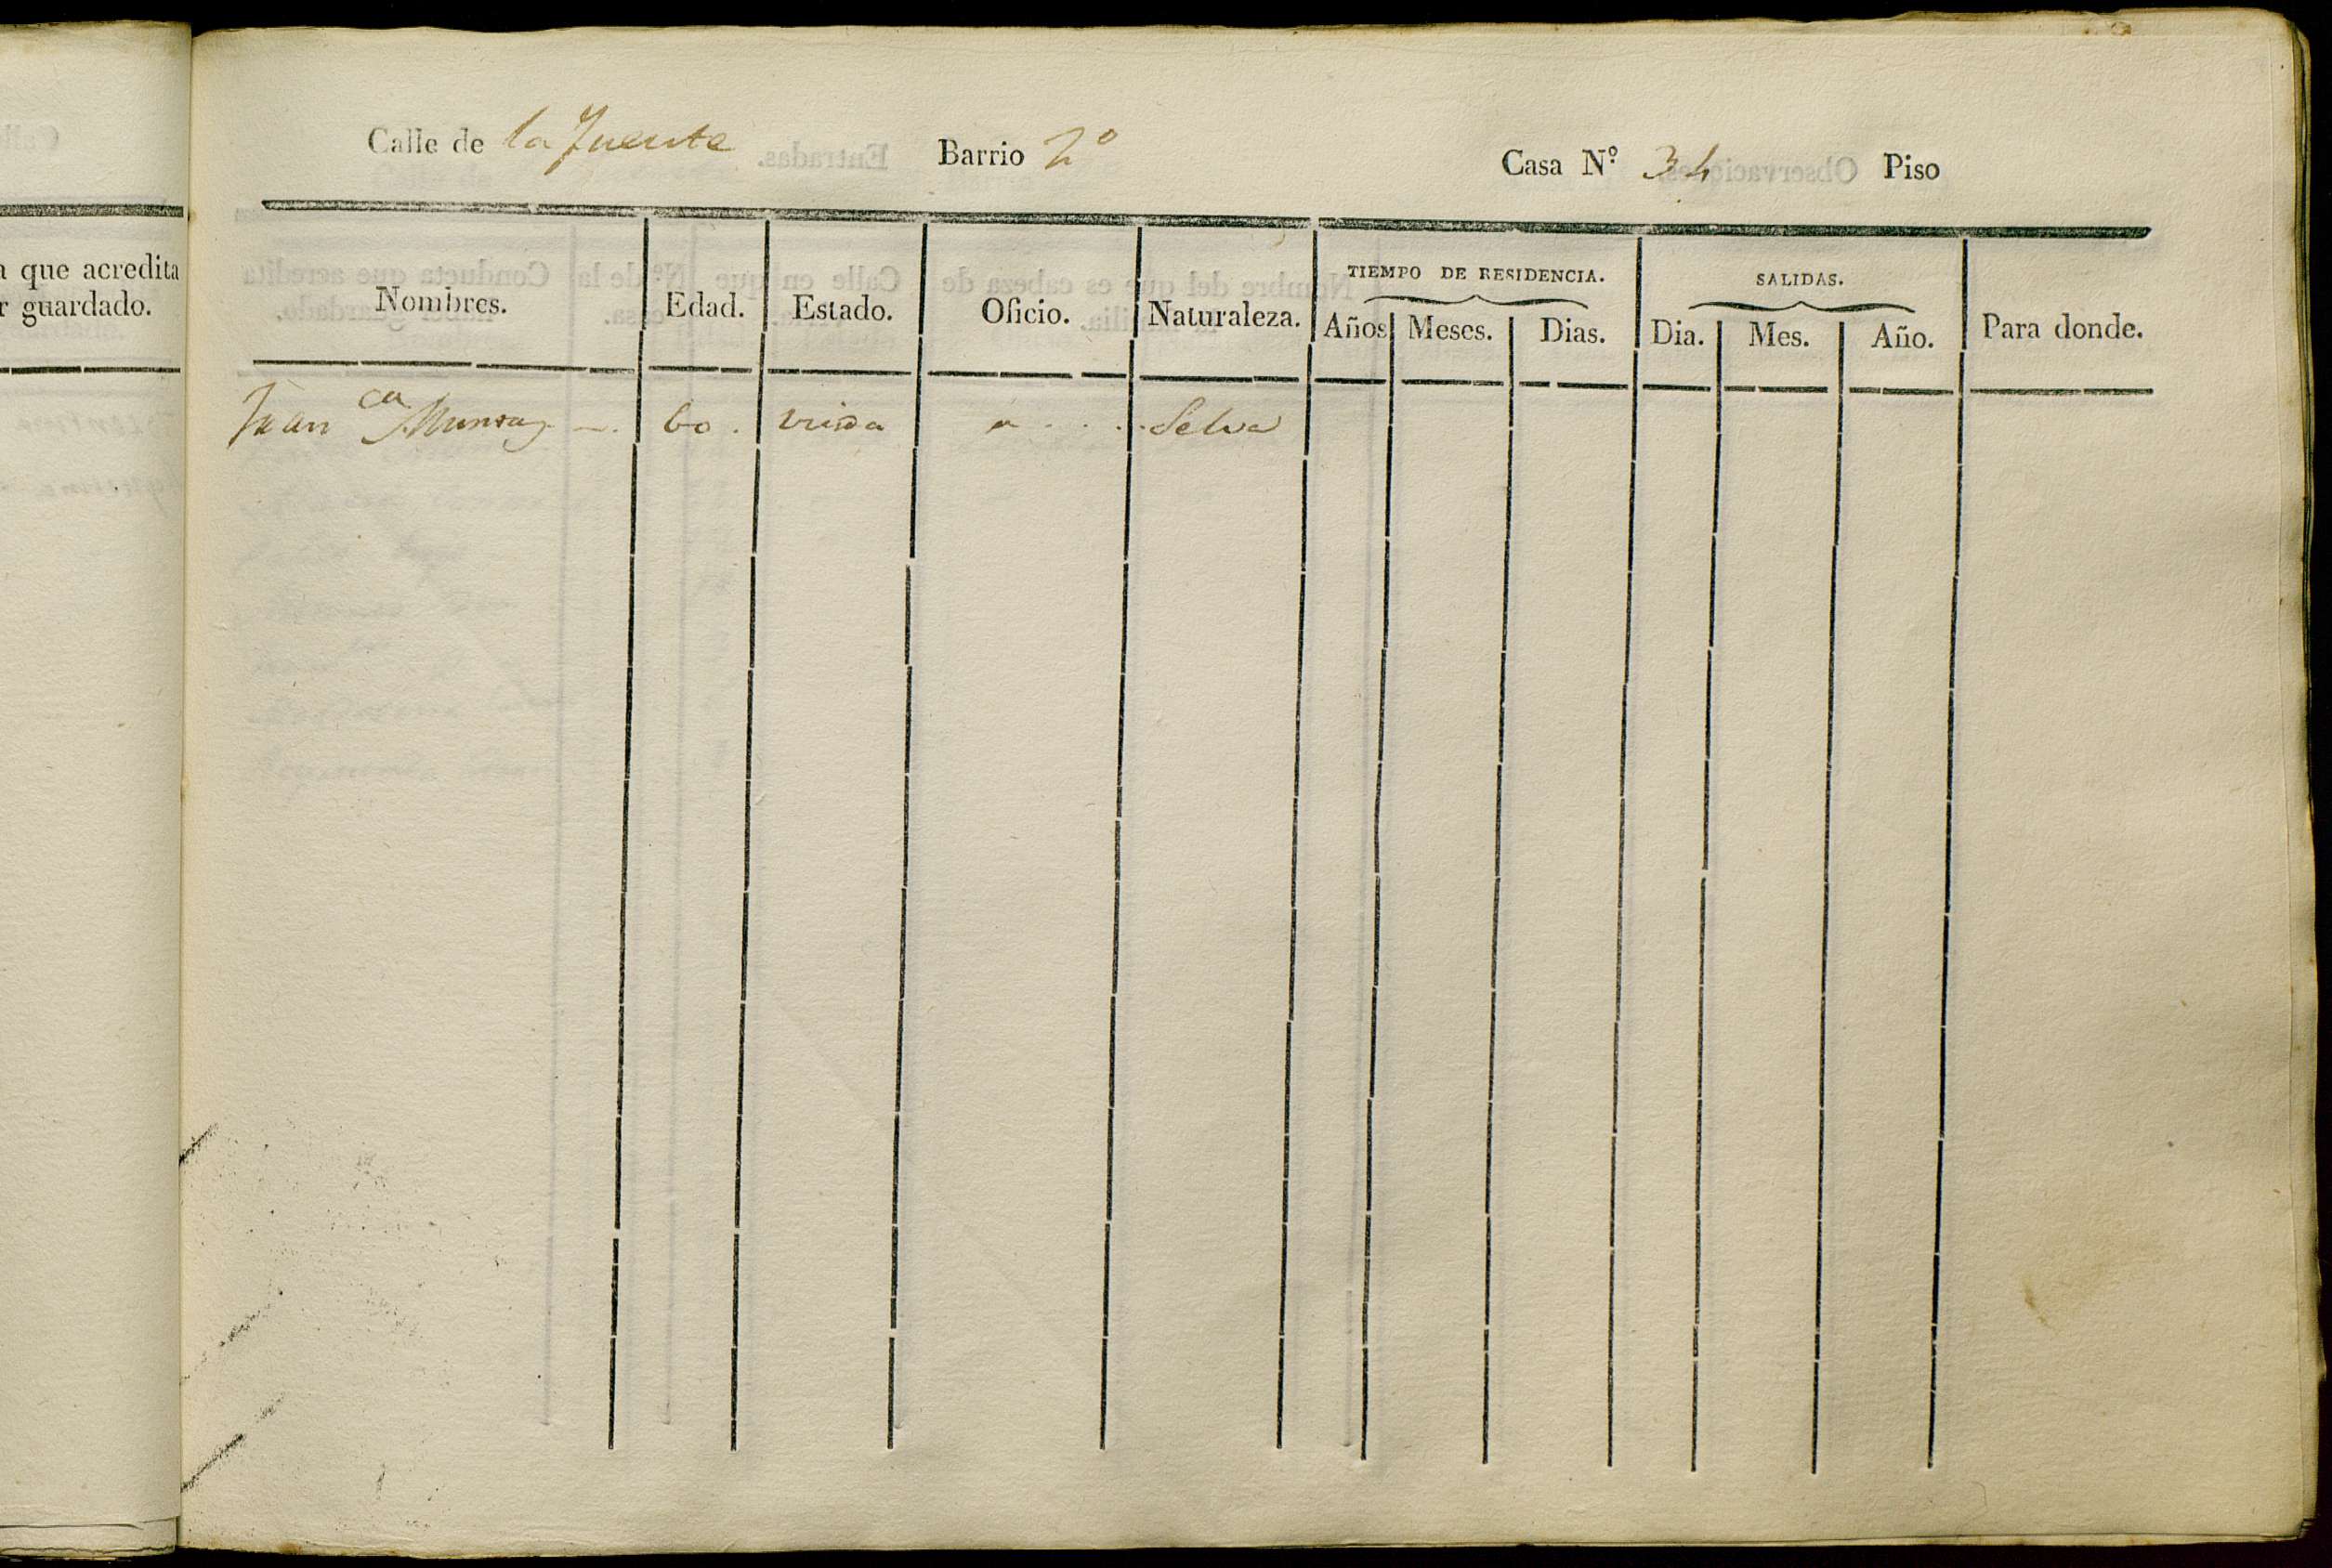 Calle de la Fuente Barrio 2º Casa Nº 34 Piso
a que acredita
r guardado.
TIEMPO DE RESIDENCIA. SALIDAS.
Nombres. Edad. Estado. Oficio. Naturaleza. Años Meses. Dias. Dia. Mes. Año. Para donde.
Franca 60. viuda Selva